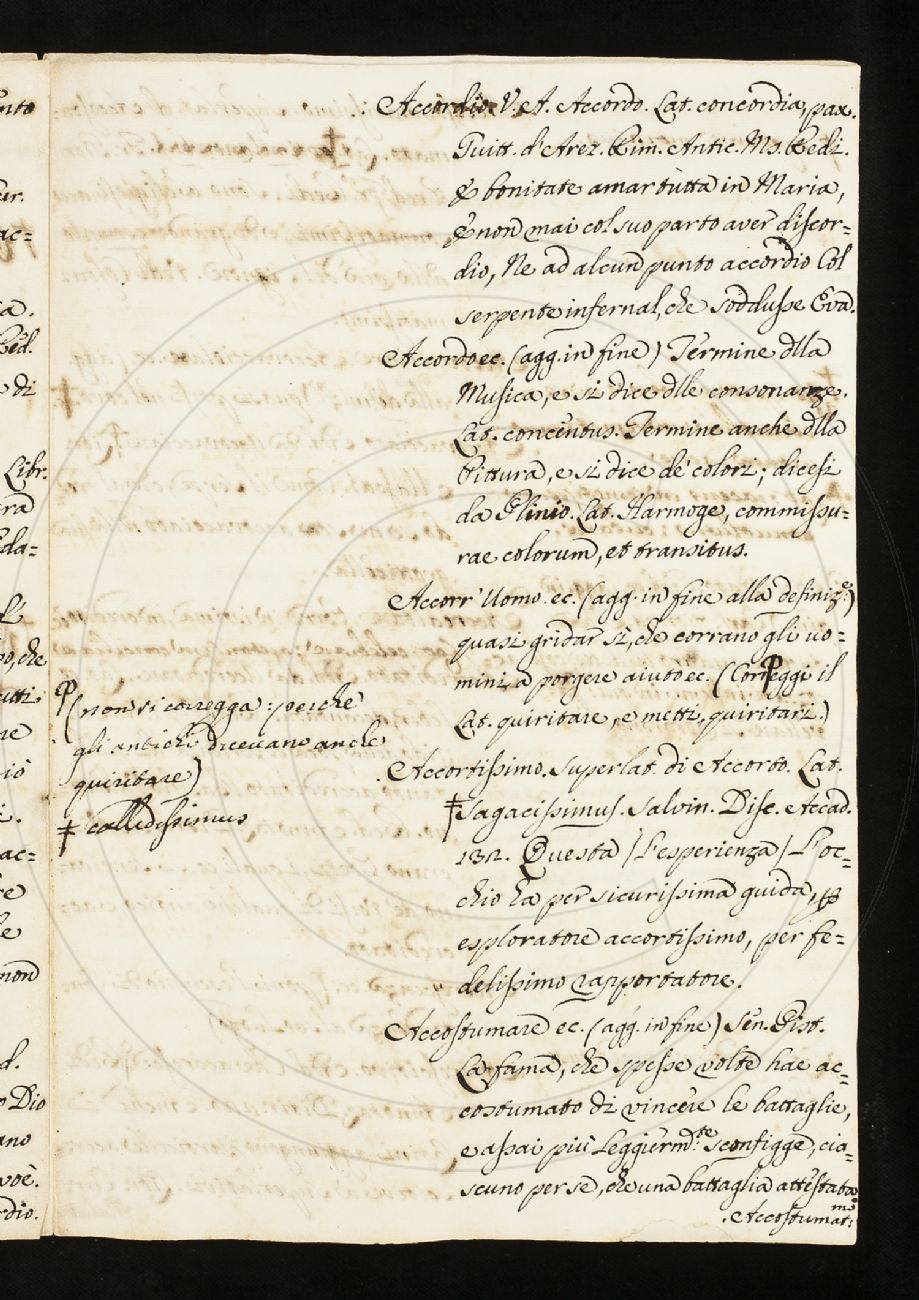 Accordio. V. A. Accordo. Lat. concordia, pax.
Guitt. d'Arez. Rim. Antic. Ms. Redi.
E bonitate amar tutta in Maria,
E non mai col suo parto aver discor=
dio, Ne ad alcun punto accordio Col
serpente infernal, che soddusse Eva.
Accordo ec. (agg. in fine) Termine dlla
Musica, e si dice dlle consonanze.
Lat. concentus. Termine anche dlla
Pittura, e si dice de' colori; dicesi
da Plinio. Lat. Harmoge, commissu=
rae colorum, et transitus.
Accorr' Uomo. ec. (agg. in fine alla definiz.e)
quasi gridar sì, che corrano gli uo=
mini a porgere aiuto ec. (Correggi il
Lat. quiritare, e metti, quiritari.)
(non si corregga: perche
gli antichi diceuano anche
quiritare)
Accortissimo. Superlat. di Accorto. Lat.
‡ sagacissimus. Salvin. Disc. Accad.
132. Questa / l'esperienza / L'oc=
chio ha per sicurissima guida, p
esploratore accortissimo, per fe=
delissimo rapportatore.
‡ callidissimus
Accostumare ec. (agg. in fine) Sen. Pist.
La fama, che spesse volte hae ac=
costumato di vincere le battaglie,
e assai più Leggierm.te sconfigge, cia=
scuno per sè, che una battaglia attestata
Accostumat.mo
nto
ur.
ac=
ia.
Red.
e di
Libr.
ra
eda=
po, che
cutti
re
iò
i.
ac=
re
le
non
d.
o Dio
ano
voè.
rdio.